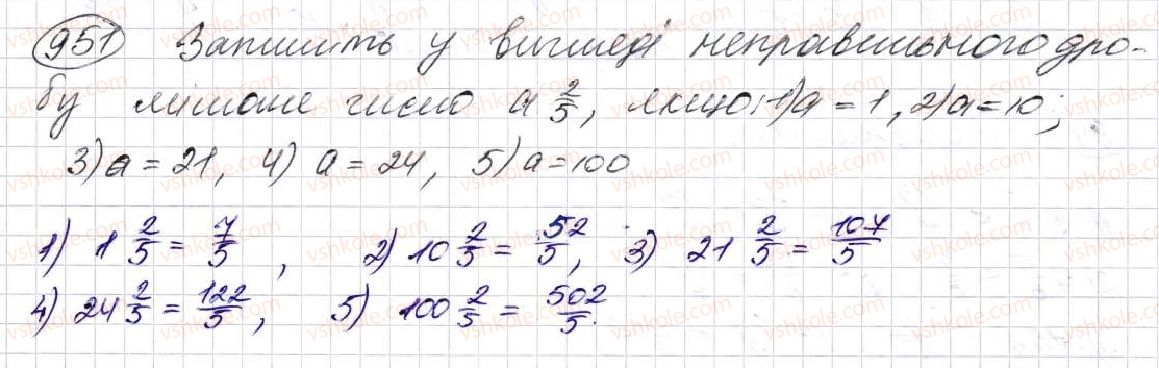 951 Запишіть у вигляді неправильного дро-
бу мішане число a 2/5, якщо: 1) a = 1, 2) a = 10;
3) a = 21, 4) a = 24, 5) a = 100
1) 1 2/5 = 7/5, 2) 10 2/5 = 52/5, 3) 21 2/5 = 107/5
4) 24 2/5 = 122/5, 5) 100 2/5 = 502/5.